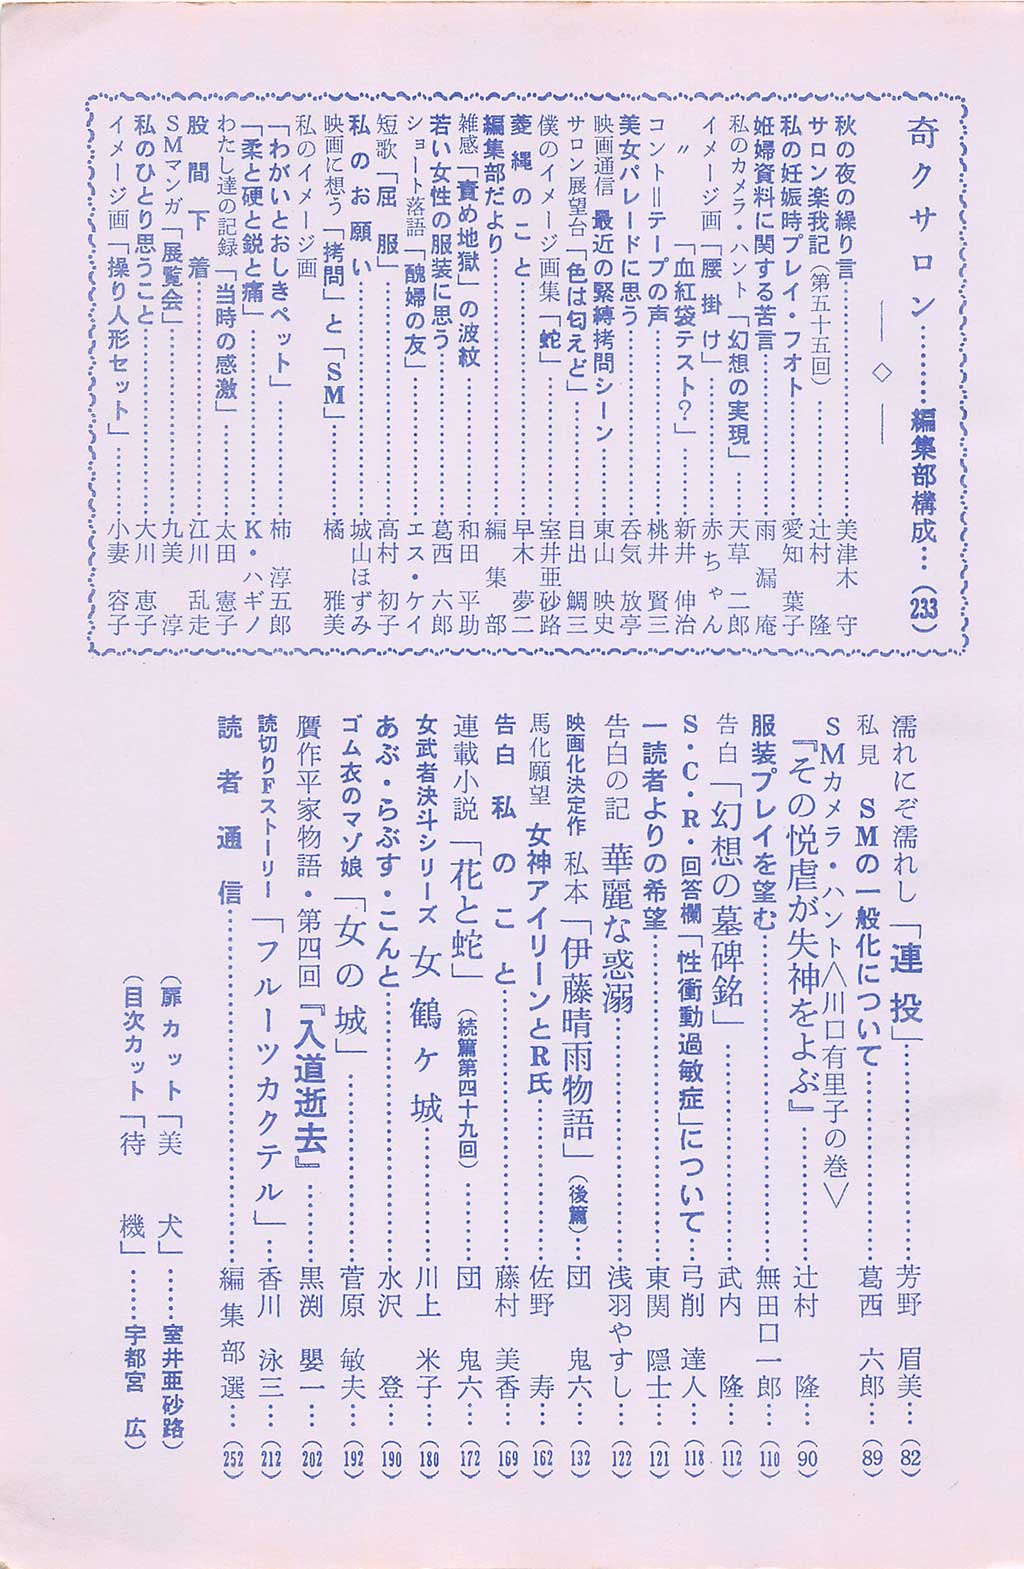 奇クサロン…………編集部構成…（233）
◇
秋の夜の繰り言……美津木 守
サロン楽我記（第五十五回）……辻村 隆
私の妊娠時プレイ・フォト……愛知 葉子
妊婦資料に関する苦言……雨漏庵
私のカメラ・ハント「幻想の実現」……天草 二郎
イメージ画「腰掛け」……赤ちゃん
〃「血紅袋テスト？」……新井 伸治
コント＝テープの声……桃井 賢三
美女パレードに思う……呑気 放亭
映画通信 最近の緊縛拷問シーン……東山 映史
サロン展望台「色は匂えど」……目出 鯛三
僕のイメージ画集「蛇」……室井亜砂路
菱縄のこと……早木 夢二
編集部だより……編集部
雑感「責め地獄」の波紋……和田 平助
若い女性の服装に思う……葛西 六郎
ショート落語「醜婦の友」……エス・ケイ
短歌「屈服」……高村 初子
私のお願い……城山ほずみ
映画に想う「拷問」と「SM」……橘 雅美
私のイメージ画
「わがいとおしきペット」……柿 淳五郎
「柔と硬と鋭と痛」……K・ハギノ
わたし達の記録「当時の感激」……太田 憲子
股間下着……江川 乱走
SMマンガ「展覧会」……九美 淳
私のひとり思うこと……大川 恵子
イメージ画「操り人形セット」……小妻 容子
濡れにぞ濡れし「連投」……芳野 眉美…（82）
私見 SMの一般化について……葛西 六郎…（89）
SMカメラ・ハント＜川口有里子の巻＞
『その悦虐が失神をよぶ』……辻村 隆…（90）
服装プレイを望む……無田口一郎…（110）
告白「幻想の墓碑銘」……武内 隆…（112）
S・C・R・回答欄「性衝動過敏症」について…弓削 達人…（118）
一読者よりの希望……東関 隠士…（121）
告白の記 華麗な惑溺……浅羽やすし…（122）
映画化決定作 私本「伊藤晴雨物語」（後篇）…団 鬼六…（132）
馬化願望 女神アイリーンとR氏……佐野 寿…（162）
告白 私のこと……藤村 美香…（169）
連載小説「花と蛇」（続篇第四十九回）……団 鬼六…（172）
女武者決斗シリーズ 女鶴ケ城……川上 米子…（180）
あぶ・らぶす・こんと……水沢 登…（190）
ゴム衣のマゾ娘「女の城」……菅原 敏夫…（192）
贋作平家物語・第四回『入道逝去』……黒渕 嬰一…（202）
読切りFストーリー「フルーツカクテル」…香川 泳三…（212）
読者通信……編集部選…（252）
（扉カット「美犬」……室井亜砂路）
（目次カット「待機」……宇都宮 広）